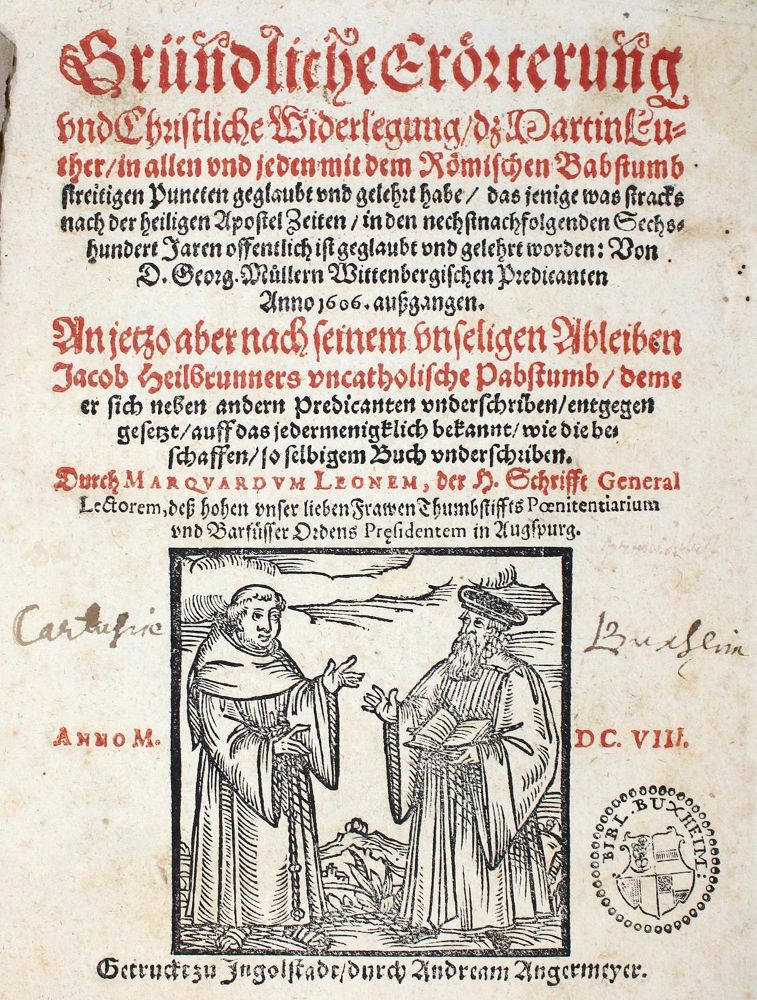 Gründliche Erörterung
vnd Christliche Widerlegung/dz Martin Lu-
ther/in allen vnd jeden mit dem Römischen Babstumb
streitigen Puncten geglaubt vnd gelehrt habe/ das jenige was stracks
nach der heiligen Apostel Zeiten/in den nechstnachfolgenden Sechs-
hundert Jaren offentlich ist geglaubt vnd gelehrt worden: Von
D. Georg. Müllern Wittenbergischen Predicanten
Anno 1606. außgangen.
An jetzo aber nach seinem vnseligen Ableiben
Jacob Heilbrunners vncatholische Pabstumb/deme
er sich neben andern Predicanten vnderschriben/entgegen
gesetzt/auff das jedermenigklich bekannt/wie die be-
schaffen/so selbigem Buch vnderschriben.
Durch MARQVARDVM LEONEM, der H. Schrifft General
Lectorem, deß hohen vnser lieben Frawen Thumbstiffts Pœnitentiarium
vnd Barfüsser Ordens Pręsidentem in Augspurg.
Cartusiæ Buxheim
ANNO M. DC. VIII.
BIBL. BUXHEIM:
Getruckt zu Jngolstadt/durch Andream Angermeyer.